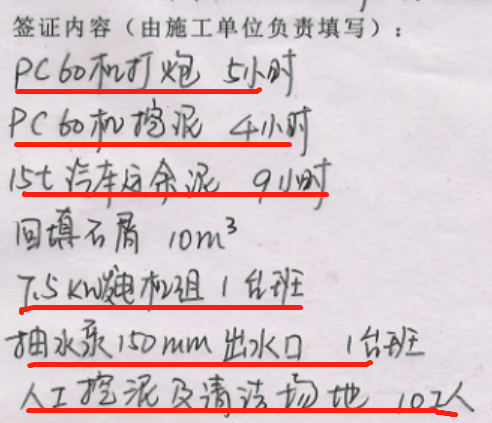 签证内容（由施工单位负责填写）：
PC60机打炮 5小时
PC60机挖泥 4小时
15t汽车运余泥 9小时
回填石屑 10m³
7.5KW发电机组 1台班
抽水泵150mm出水口 1台班
人工挖泥及清洁场地 10工人